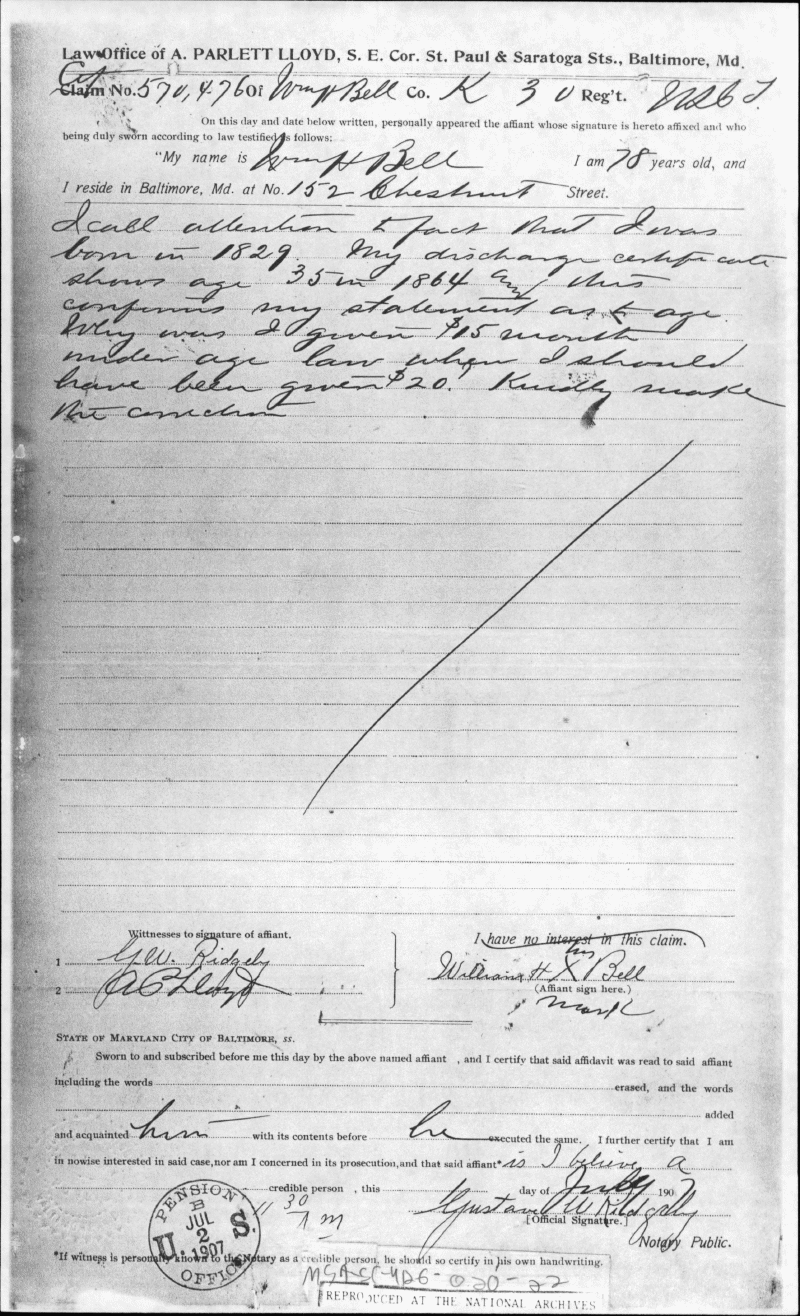 Law Office of A. PARLETT LLOYD, S. E. Cor. St. Paul & Saratoga Sts., Baltimore, Md.
Ctf
Claim No. 570,476 Of Wm H Bell Co. K 30 Reg't. USCT.
On this day and date below written, personally appeared the affiant whose signature is hereto affixed and who
being duly sworn according to law testified as follows:
"My name is Wm H Bell I am 78 years old, and
I reside in Baltimore, Md. at No. 152 Chestnut Street.
I call attention to fact that I was
born in 1829. My discharge certificate
shows age 35 in 1864 and this
confirms my statement as to age.
Why was I given $15 month
under age law when I should
have been given $20. Kindly make
the correction
Wittnesses to signature of affiant.
I have no interest in this claim.
1 G.W. Ridgely
his
William H X Bell
2 A P Lloyd
(Affiant sign here.)
mark
STATE OF MARYLAND CITY OF BALTIMORE, ss.
Sworn to and subscribed before me this day by the above named affiant , and I certify that said affidavit was read to said affiant
including the words erased, and the words
added
and acquainted him with its contents before he executed the same. I further certify that I am
in nowise interested in said case, nor am I concerned in its prosecution, and that said affiant* is I believe a
credible person , this day of July 1907
11 30 AM
Gustave W Ridgely
[Official Signature.]
Notary Public.
PENSION
B
JUL
2
1907
U. S.
OFFICE
*If witness is personally known to the Notary as a credible person, he should so certify in his own handwriting.
MSA SC 4126-020-22
REPRODUCED AT THE NATIONAL ARCHIVES